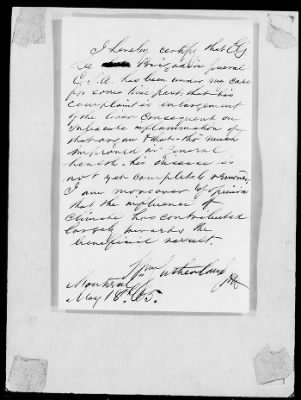 I hereby certify that EG
Lee Brigadier General
C.S.A. has been under my care
for some time past, that his
complaint is enlargement
of the liver consequent on
subacute inflammation of
that organ & that tho' much
improved in general
health, his disease is
not yet completely removed,
I am moreover of opinion
that the influence of
climate has contributed
largely towards the
beneficial result.
Wm Sutherland MD
Montreal
May 18th 65.